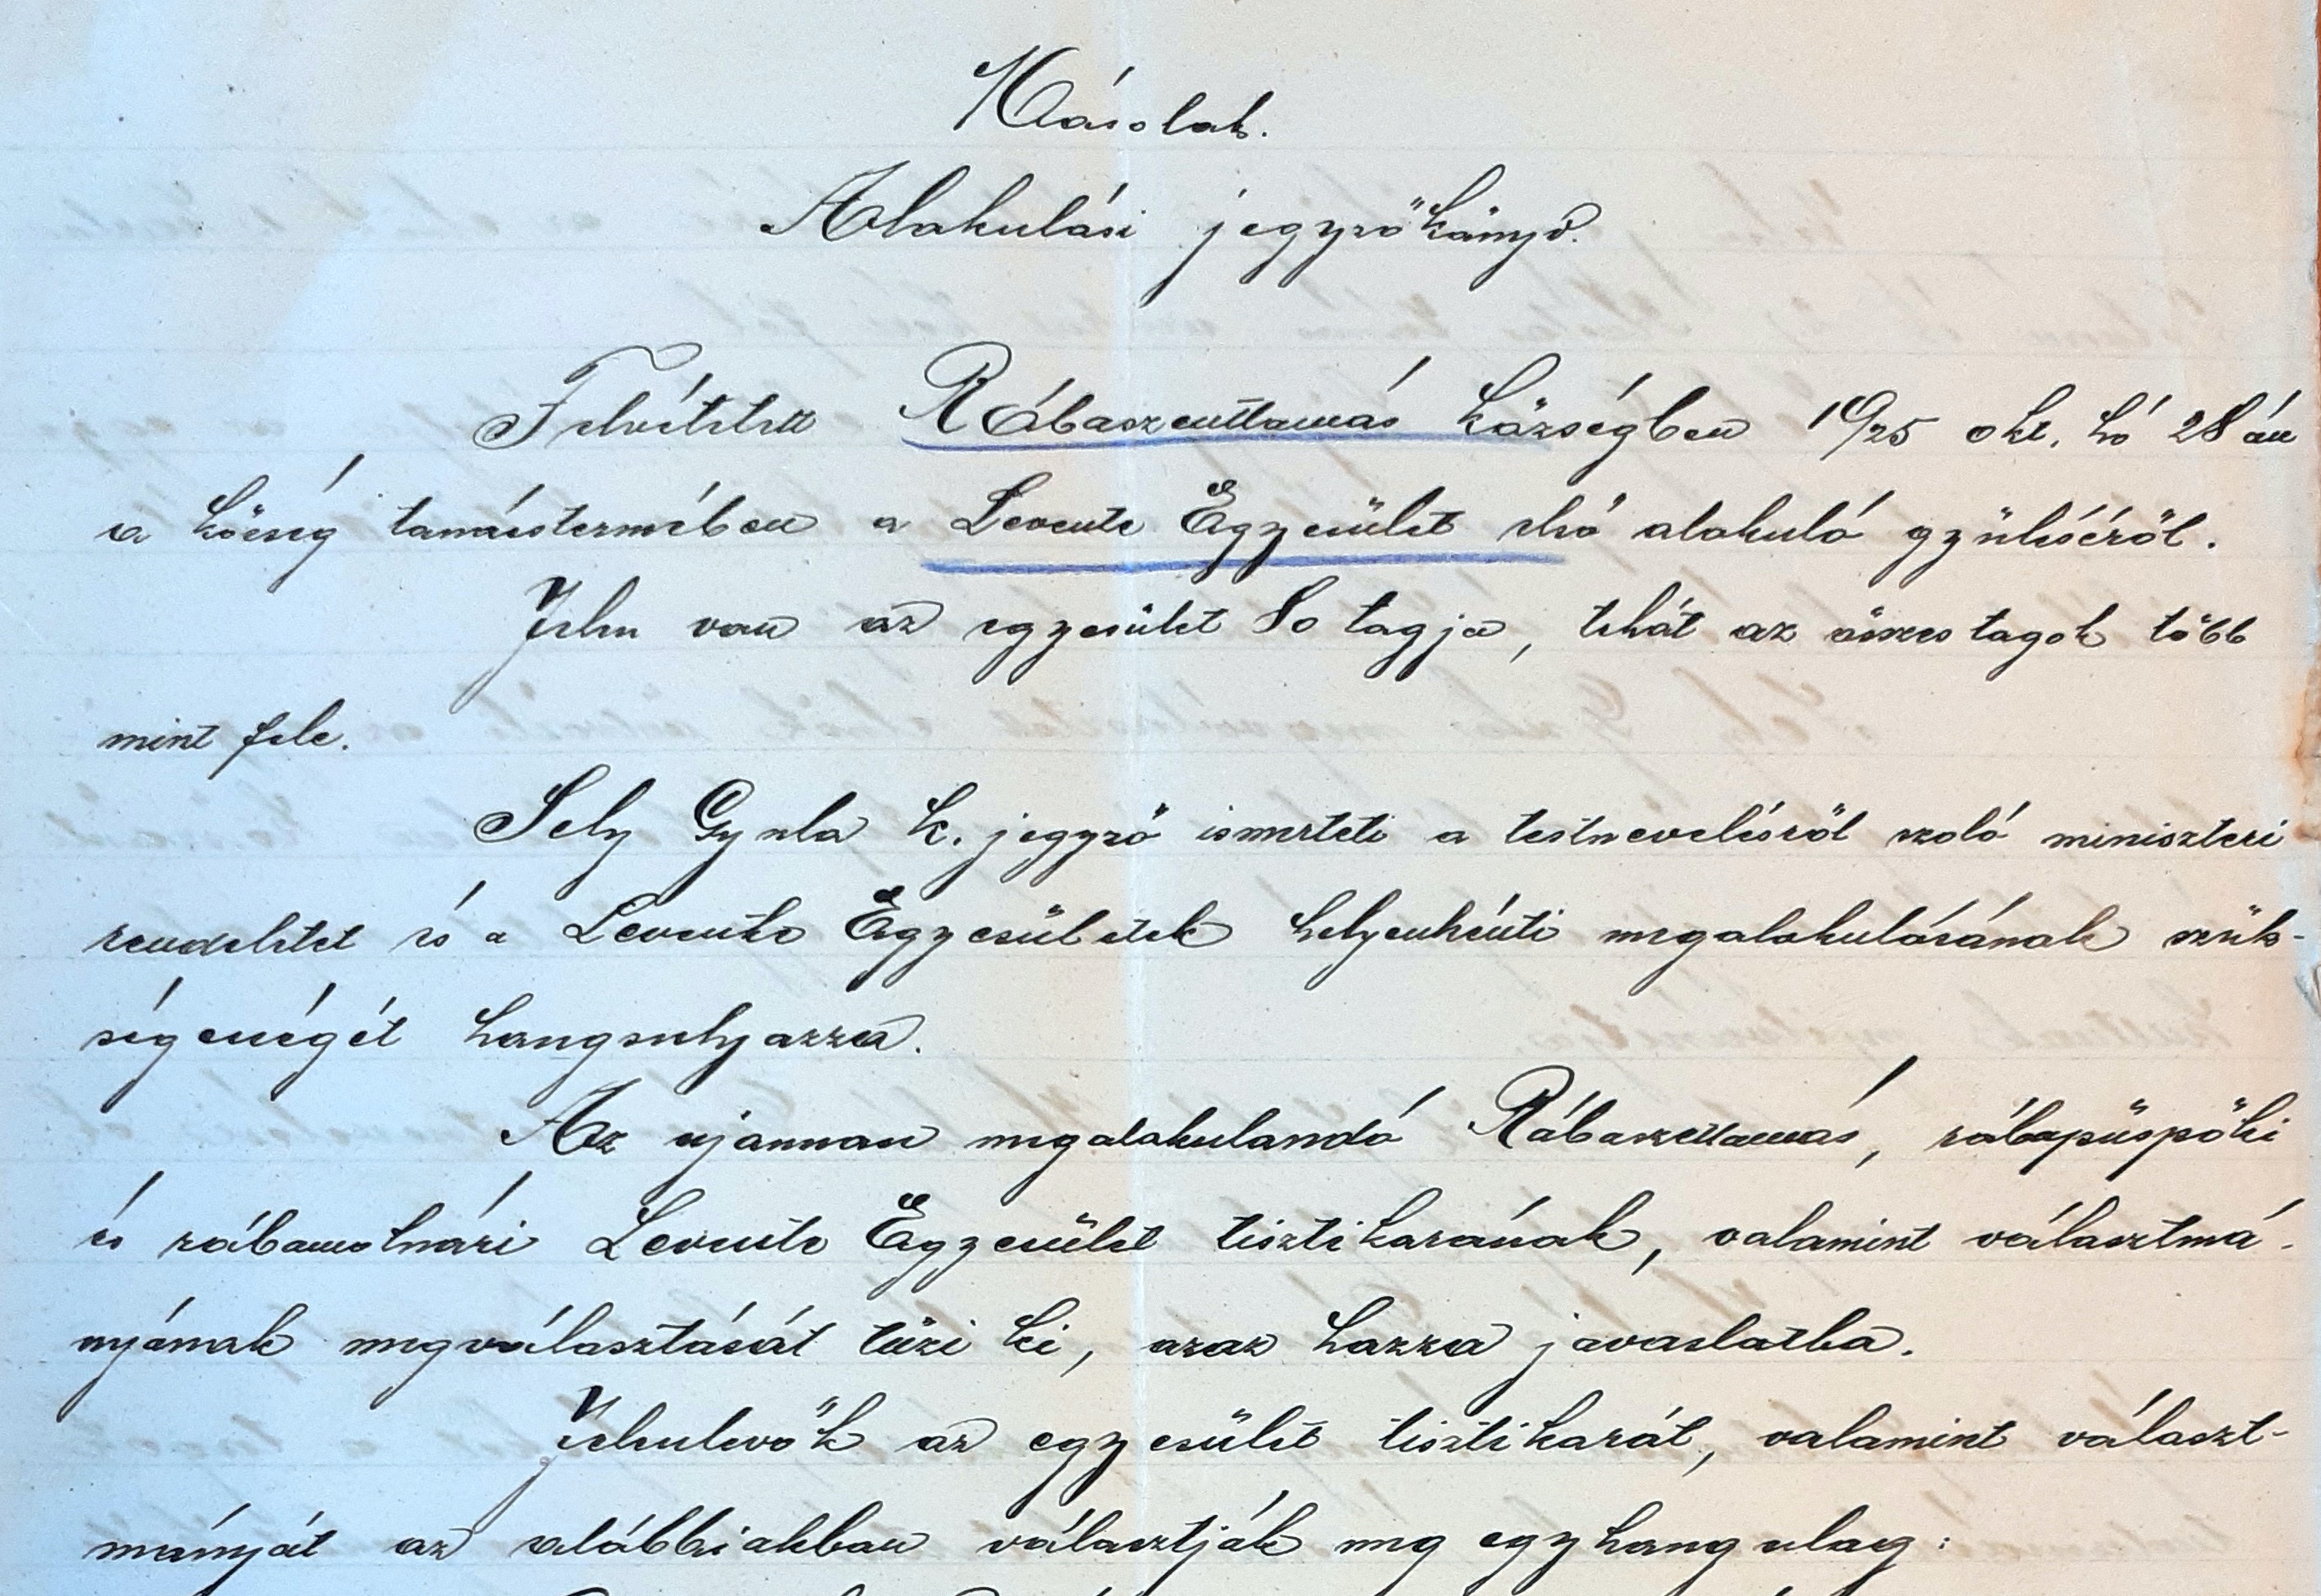 Másolat.
Alakulási jegyzőkönyv.
Felvétetett Rábaszenttamás községben 1925 okt. hó 28 án
a község tanácstermében a Levente Egyesület első alakuló gyűléséről.
Jelen van az egyesület 80 tagja, tehát az összes tagok több
mint fele.
Sely Gyula k. jegyző ismerteti a testnevelésről szoló miniszteri
rendeletet és a Levente Egyesületek helyenkénti megalakulásának szük-
ségességét hangsulyozza.
Az ujonnan megalakulandó Rábaszenttamás, rábapüspöki
és rábamolnári Levente Egyesület tisztikarának, valamint választmá-
nyának megválasztását tűzi ki, azaz hozza javaslatba.
Jelenlevők az egyesület tisztikarát, valamint választ-
mányát az alábbiakban választják meg egyhangulag: